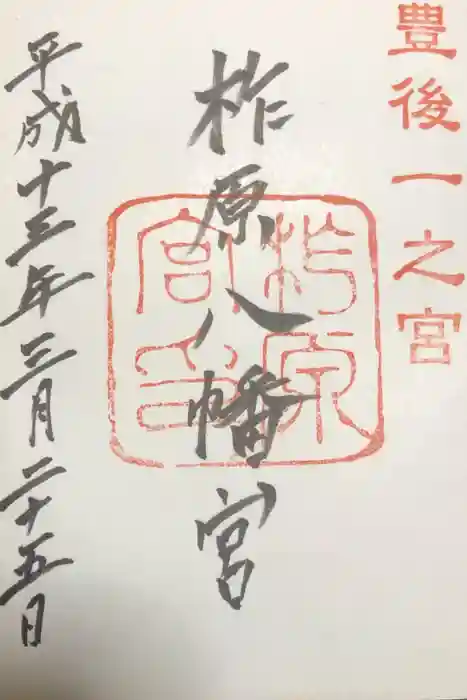 豊後一之宮
柞原八幡宮
平成十三年三月二十五日